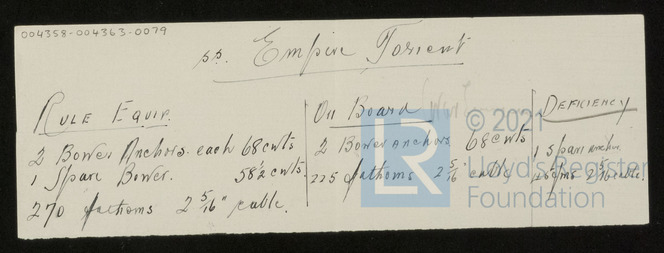 004358-004363-0079
s.s. Empire Torrent
Rule Equip.
2 Bower Anchors each 68 cwts
1 Spare Bower. 58½ cwts.
270 fathoms 2 5/16" cable.
On Board
2 Bower anchors 68 cwts
225 fathoms 2 5/16 cable
Deficiency
1 Spare anchor
45 fms 2 5/16 cable.
LR
© 2021
Lloyd's Register
Foundation